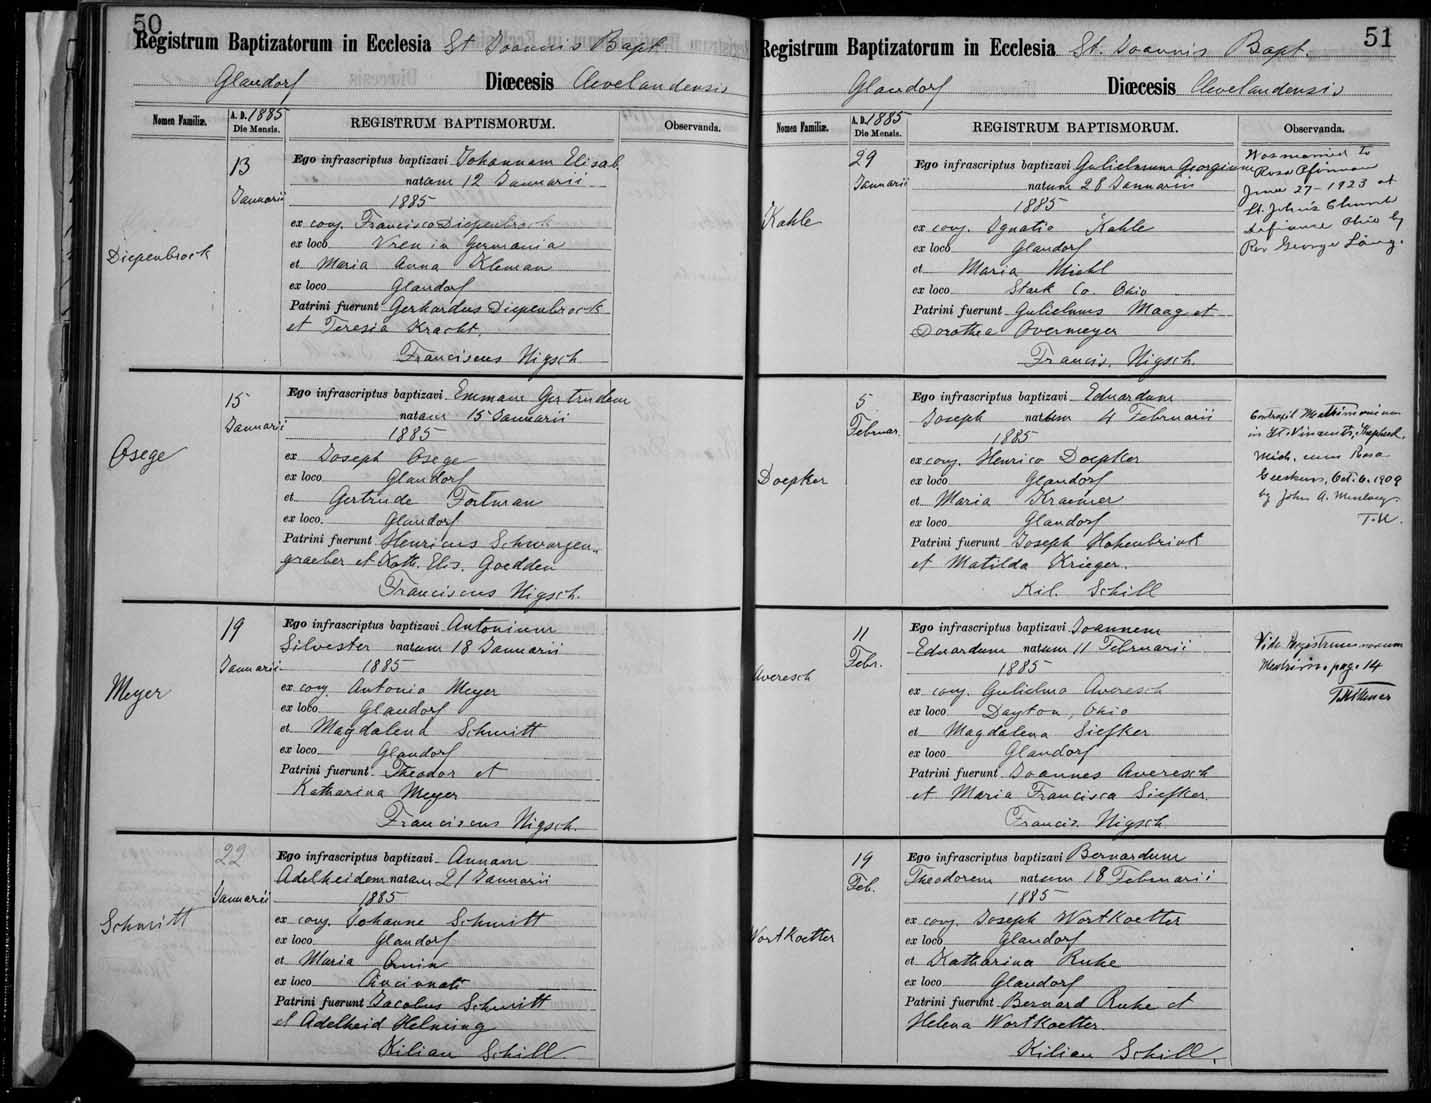 50
Registrum Baptizatorum in Ecclesia St Joannis Bapt
Glandorf Diœcesis Clevelandensis
Nomen Familiæ. A. D. 1885 Die Mensis. REGISTRUM BAPTISMORUM. Observanda.
13 Januarii
Diepenbrock
Ego infrascriptus baptizavi Johannam Elisab.
natam 12 Januarii
1885
ex conj. Francisco Diepenbrock
ex loco Vren in Germania
et Maria Anna Kleman
ex loco Glandorf
Patrini fuerunt Gerhardus Diepenbrock
et Teresia Kracht.
Franciscus Nigsch
15 Januarii
Osege
Ego infrascriptus baptizavi Emmam Gertrudem
natam 15 Januarii
1885
ex Joseph Osege
ex loco Glandorf
et Gertrude Fortman
ex loco. Glandorf
Patrini fuerunt Henricus Schwarzen-
graeber et Kath. Elis. Goedden
Franciscus Nigsch.
19 Januarii
Meyer
Ego infrascriptus baptizavi Antonium
Silvester natum 18 Januarii
1885
ex conj. Antonio Meyer
ex loco Glandorf
et Magdalena Schmitt
ex loco Glandorf
Patrini fuerunt Theodor et
Katharina Meyer
Franciscus Nigsch.
22 Januarii
Schmitt
Ego infrascriptus baptizavi Annam
Adelheidem natam 21 Januarii
1885
ex conj. Johanne Schmitt
ex loco Glandorf
et Maria
ex loco Cincinnati
Patrini fuerunt Jacobus Schmitt
et Adelheid Helming
Kilian Schill.
51
Registrum Baptizatorum in Ecclesia St. Joannis Bapt.
Glandorf Diœcesis Clevelandensis
Nomen Familiæ. A. D. 1885 Die Mensis. REGISTRUM BAPTISMORUM. Observanda.
29 Januarii
Kahle
Ego infrascriptus baptizavi Gulielmum Georgium
natum 28 Januarii
1885
ex conj. Ignatio Kahle
ex loco Glandorf
et Maria Miehl
ex loco Stark Co. Ohio
Patrini fuerunt Gulielmus Maag et
Dorothea Overmeyer
Francis. Nigsch.
Was married to
Rosa
June 27-1923 at
St. John's Church
Defiance Ohio by
Rev George Läng.
5 Februar.
Doepker
Ego infrascriptus baptizavi Eduardum
Joseph natum 4 Februarii
1885
ex conj. Henrico Doepker
ex loco Glandorf
et Maria Kraemer
ex loco Glandorf
Patrini fuerunt Joseph Hohenbrink
et Matilda Krieger.
Kil. Schill
Contraxit Matrimonium
in St Vincent's, Shepherd,
Mich. cum Rosa
Oct. 6. 1909
by John A.
11 Febr.
Averesch
Ego infrascriptus baptizavi Joannem
Eduardum natum 11 Februarii
1885
ex conj. Gulielmo Averesch
ex loco Dayton, Ohio
et Magdalena Siefker
ex loco Glandorf
Patrini fuerunt Joannes Averesch
et Maria Francisca Siefker.
Francis. Nigsch
Vide Registrum novum
Matrim. pag. 14
19 Feb.
Wortkoetter
Ego infrascriptus baptizavi Bernardum
Theodorem natum 18 Februarii
1885
ex conj. Joseph Wortkoetter
ex loco Glandorf
et Katharina Ruhe
ex loco Glandorf
Patrini fuerunt Bernard Ruhe et
Helena Wortkoetter.
Kilian Schill.